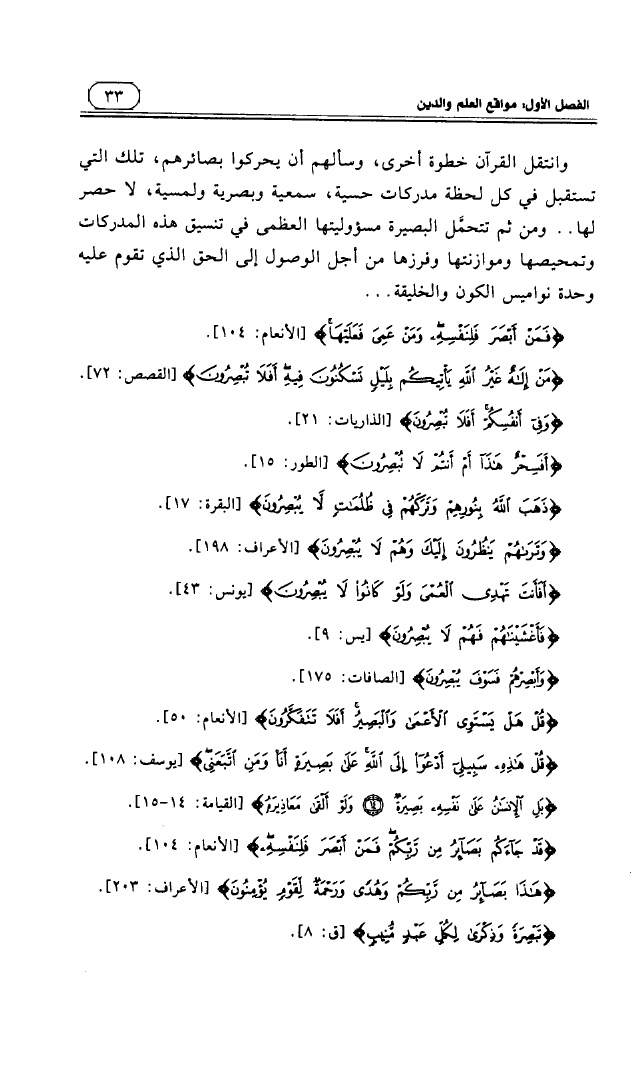 الفصل الأول: مواقع العلم والدين
٣٣
وانتقل القرآن خطوة أخرى، وسألهم أن يحركوا بصائرهم، تلك التي
تستقبل في كل لحظة مدركات حسية، سمعية وبصرية ولمسية، لا حصر
لها.. ومن ثم تتحمَّل البصيرة مسؤوليتها العظمى في تنسيق هذه المدركات
وتمحيصها وموازنتها وفرزها من أجل الوصول إلى الحق الذي تقوم عليه
وحدة نواميس الكون والخليقة...
﴿فَمَنْ أَبْصَرَ فَلِنَفْسِهِۦ وَمَنْ عَمِىَ فَعَلَيْهَا﴾ [الأنعام: ١٠٤].
﴿مَنْ إِلَٰهٌ غَيْرُ ٱللَّهِ يَأْتِيكُم بِلَيْلٍ تَسْكُنُونَ فِيهِ أَفَلَا تُبْصِرُونَ﴾ [القصص: ٧٢].
﴿وَفِىٓ أَنفُسِكُمْ أَفَلَا تُبْصِرُونَ﴾ [الذاريات: ٢١].
﴿أَفَسِحْرٌ هَٰذَآ أَمْ أَنتُمْ لَا تُبْصِرُونَ﴾ [الطور: ١٥].
﴿ذَهَبَ ٱللَّهُ بِنُورِهِمْ وَتَرَكَهُمْ فِى ظُلُمَٰتٍ لَّا يُبْصِرُونَ﴾ [البقرة: ١٧].
﴿وَتَرَىٰهُمْ يَنظُرُونَ إِلَيْكَ وَهُمْ لَا يُبْصِرُونَ﴾ [الأعراف: ١٩٨].
﴿أَفَأَنتَ تَهْدِى ٱلْعُمْىَ وَلَوْ كَانُوا۟ لَا يُبْصِرُونَ﴾ [يونس: ٤٣].
﴿فَأَغْشَيْنَٰهُمْ فَهُمْ لَا يُبْصِرُونَ﴾ [يس: ٩].
﴿وَأَبْصِرْهُمْ فَسَوْفَ يُبْصِرُونَ﴾ [الصافات: ١٧٥].
﴿قُلْ هَلْ يَسْتَوِى ٱلْأَعْمَىٰ وَٱلْبَصِيرُ أَفَلَا تَتَفَكَّرُونَ﴾ [الأنعام: ٥٠].
﴿قُلْ هَٰذِهِۦ سَبِيلِىٓ أَدْعُوٓا۟ إِلَى ٱللَّهِ عَلَىٰ بَصِيرَةٍ أَنَا۠ وَمَنِ ٱتَّبَعَنِى﴾ [يوسف: ١٠٨].
﴿بَلِ ٱلْإِنسَٰنُ عَلَىٰ نَفْسِهِۦ بَصِيرَةٌ ١٤ وَلَوْ أَلْقَىٰ مَعَاذِيرَهُ﴾ [القيامة: ١٤-١٥].
﴿قَدْ جَآءَكُم بَصَآئِرُ مِن رَّبِّكُمْ فَمَنْ أَبْصَرَ فَلِنَفْسِهِۦ﴾ [الأنعام: ١٠٤].
﴿هَٰذَا بَصَآئِرُ مِن رَّبِّكُمْ وَهُدًى وَرَحْمَةٌ لِّقَوْمٍ يُؤْمِنُونَ﴾ [الأعراف: ٢٠٣].
﴿تَبْصِرَةً وَذِكْرَىٰ لِكُلِّ عَبْدٍ مُّنِيبٍ﴾ [ق: ٨].